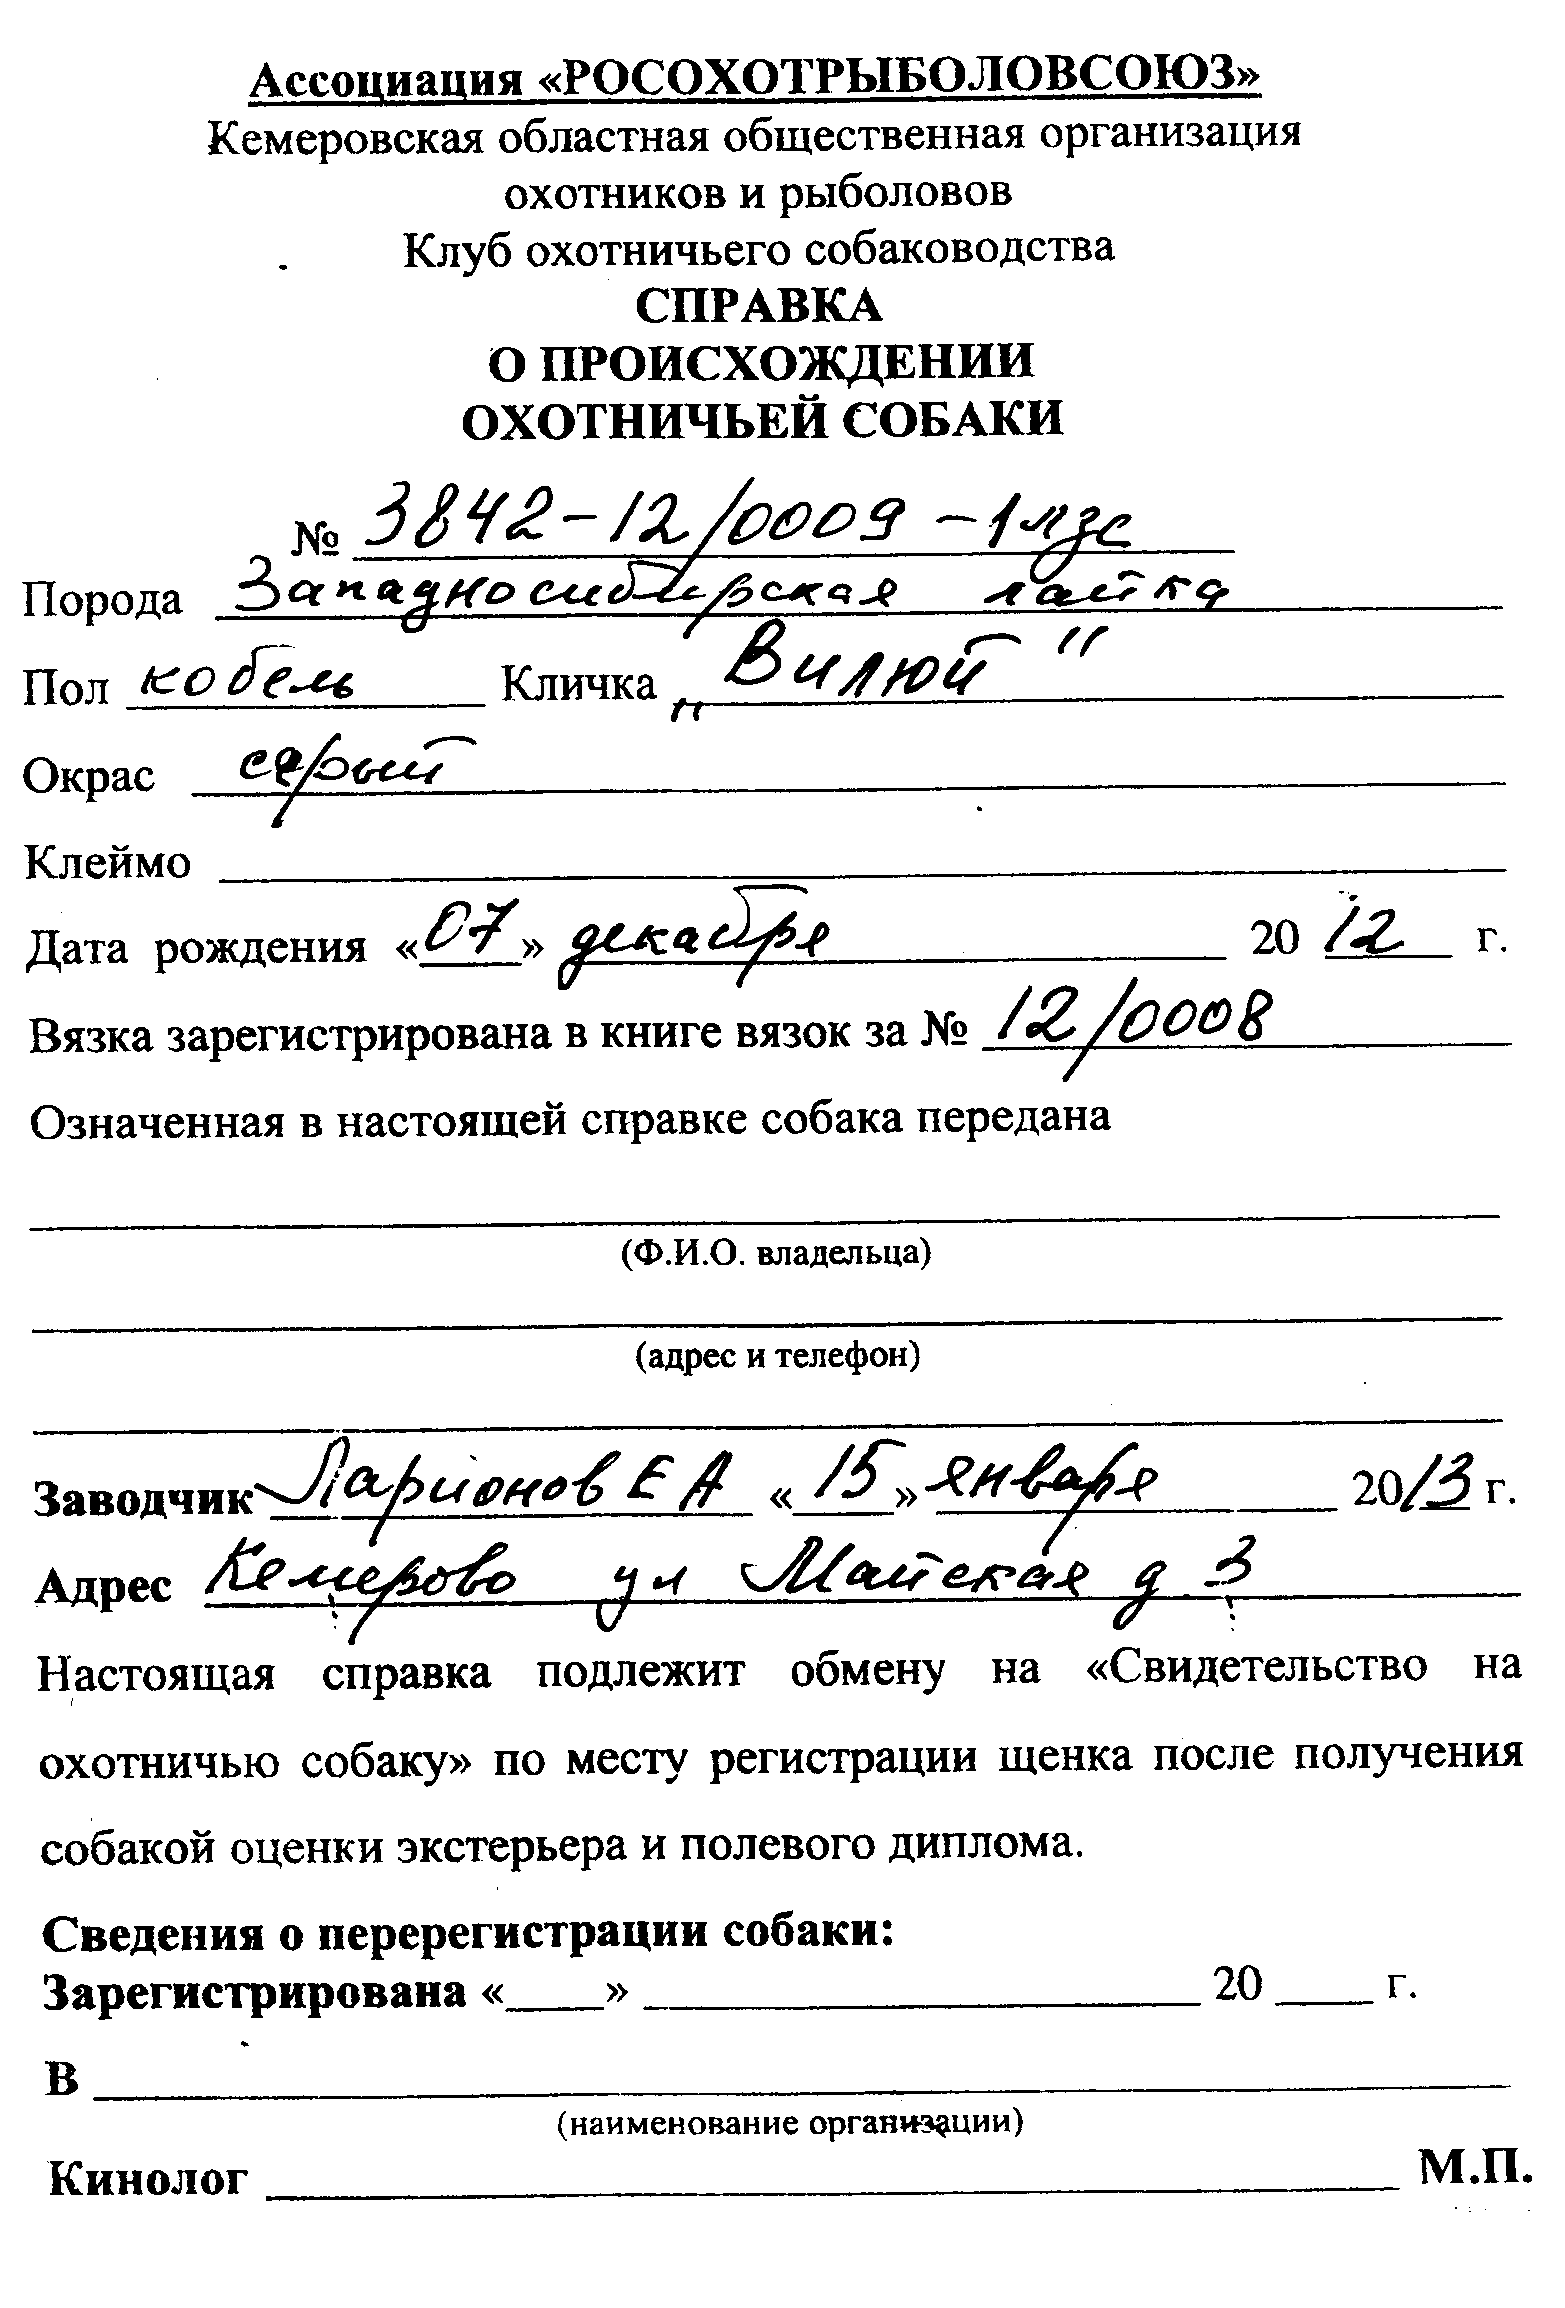 Ассоциация «РОСОХОТРЫБОЛОВСОЮЗ»
Кемеровская областная общественная организация
охотников и рыболовов
Клуб охотничьего собаководства
СПРАВКА
О ПРОИСХОЖДЕНИИ
ОХОТНИЧЬЕЙ СОБАКИ
№ 3842-12/0009-1лзс
Порода Западносибирская лайка
Пол кобель Кличка „Вилюй"
Окрас серый
Клеймо
Дата рождения «07» декабря 2012 г.
Вязка зарегистрирована в книге вязок за № 12/0008
Означенная в настоящей справке собака передана
(Ф.И.О. владельца)
(адрес и телефон)
Заводчик Ларионов Е А «15» января 2013 г.
Адрес Кемерово ул Майская д 3
Настоящая справка подлежит обмену на «Свидетельство на
охотничью собаку» по месту регистрации щенка после получения
собакой оценки экстерьера и полевого диплома.
Сведения о перерегистрации собаки:
Зарегистрирована «____» ____ 20 ____ г.
В
(наименование организации)
Кинолог ____ М.П.